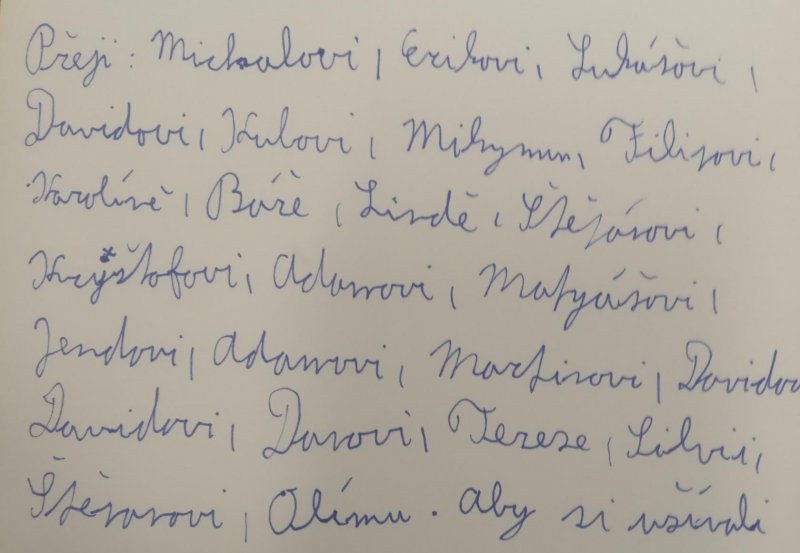 Přeji: Michalovi, Erikovi, Lukášovi,
Davidovi, Kubovi, Mikymu, Filipovi,
Karolíně, Báře, Lindě, Štěpánovi,
Kryštofovi, Adamovi, Matyášovi,
Jendovi, Adamovi, Martinovi, Davidov
Davidovi, Danovi, Tereze, Silvii,
Štěpanovi, Olímu. Aby si užívali